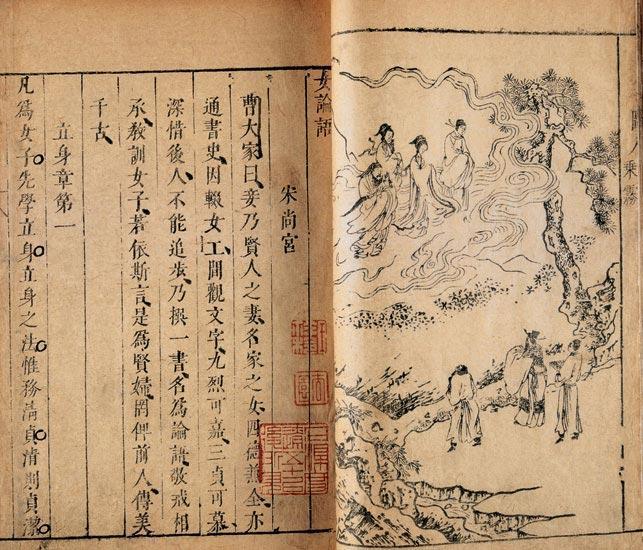 人乘霧
女論語
宋尚宮
曹大家曰妾乃賢人之妻名家之女四德兼全亦
通書史因輟女工閒觀文字九烈可嘉三貞可慕
深惜後人不能追步乃撰一書名爲論語敬戒相
承教訓女子若依斯言是爲賢婦罔俾前人傳美
千古
立身章第一
凡爲女子先學立身立身之法惟務清貞清則貞潔